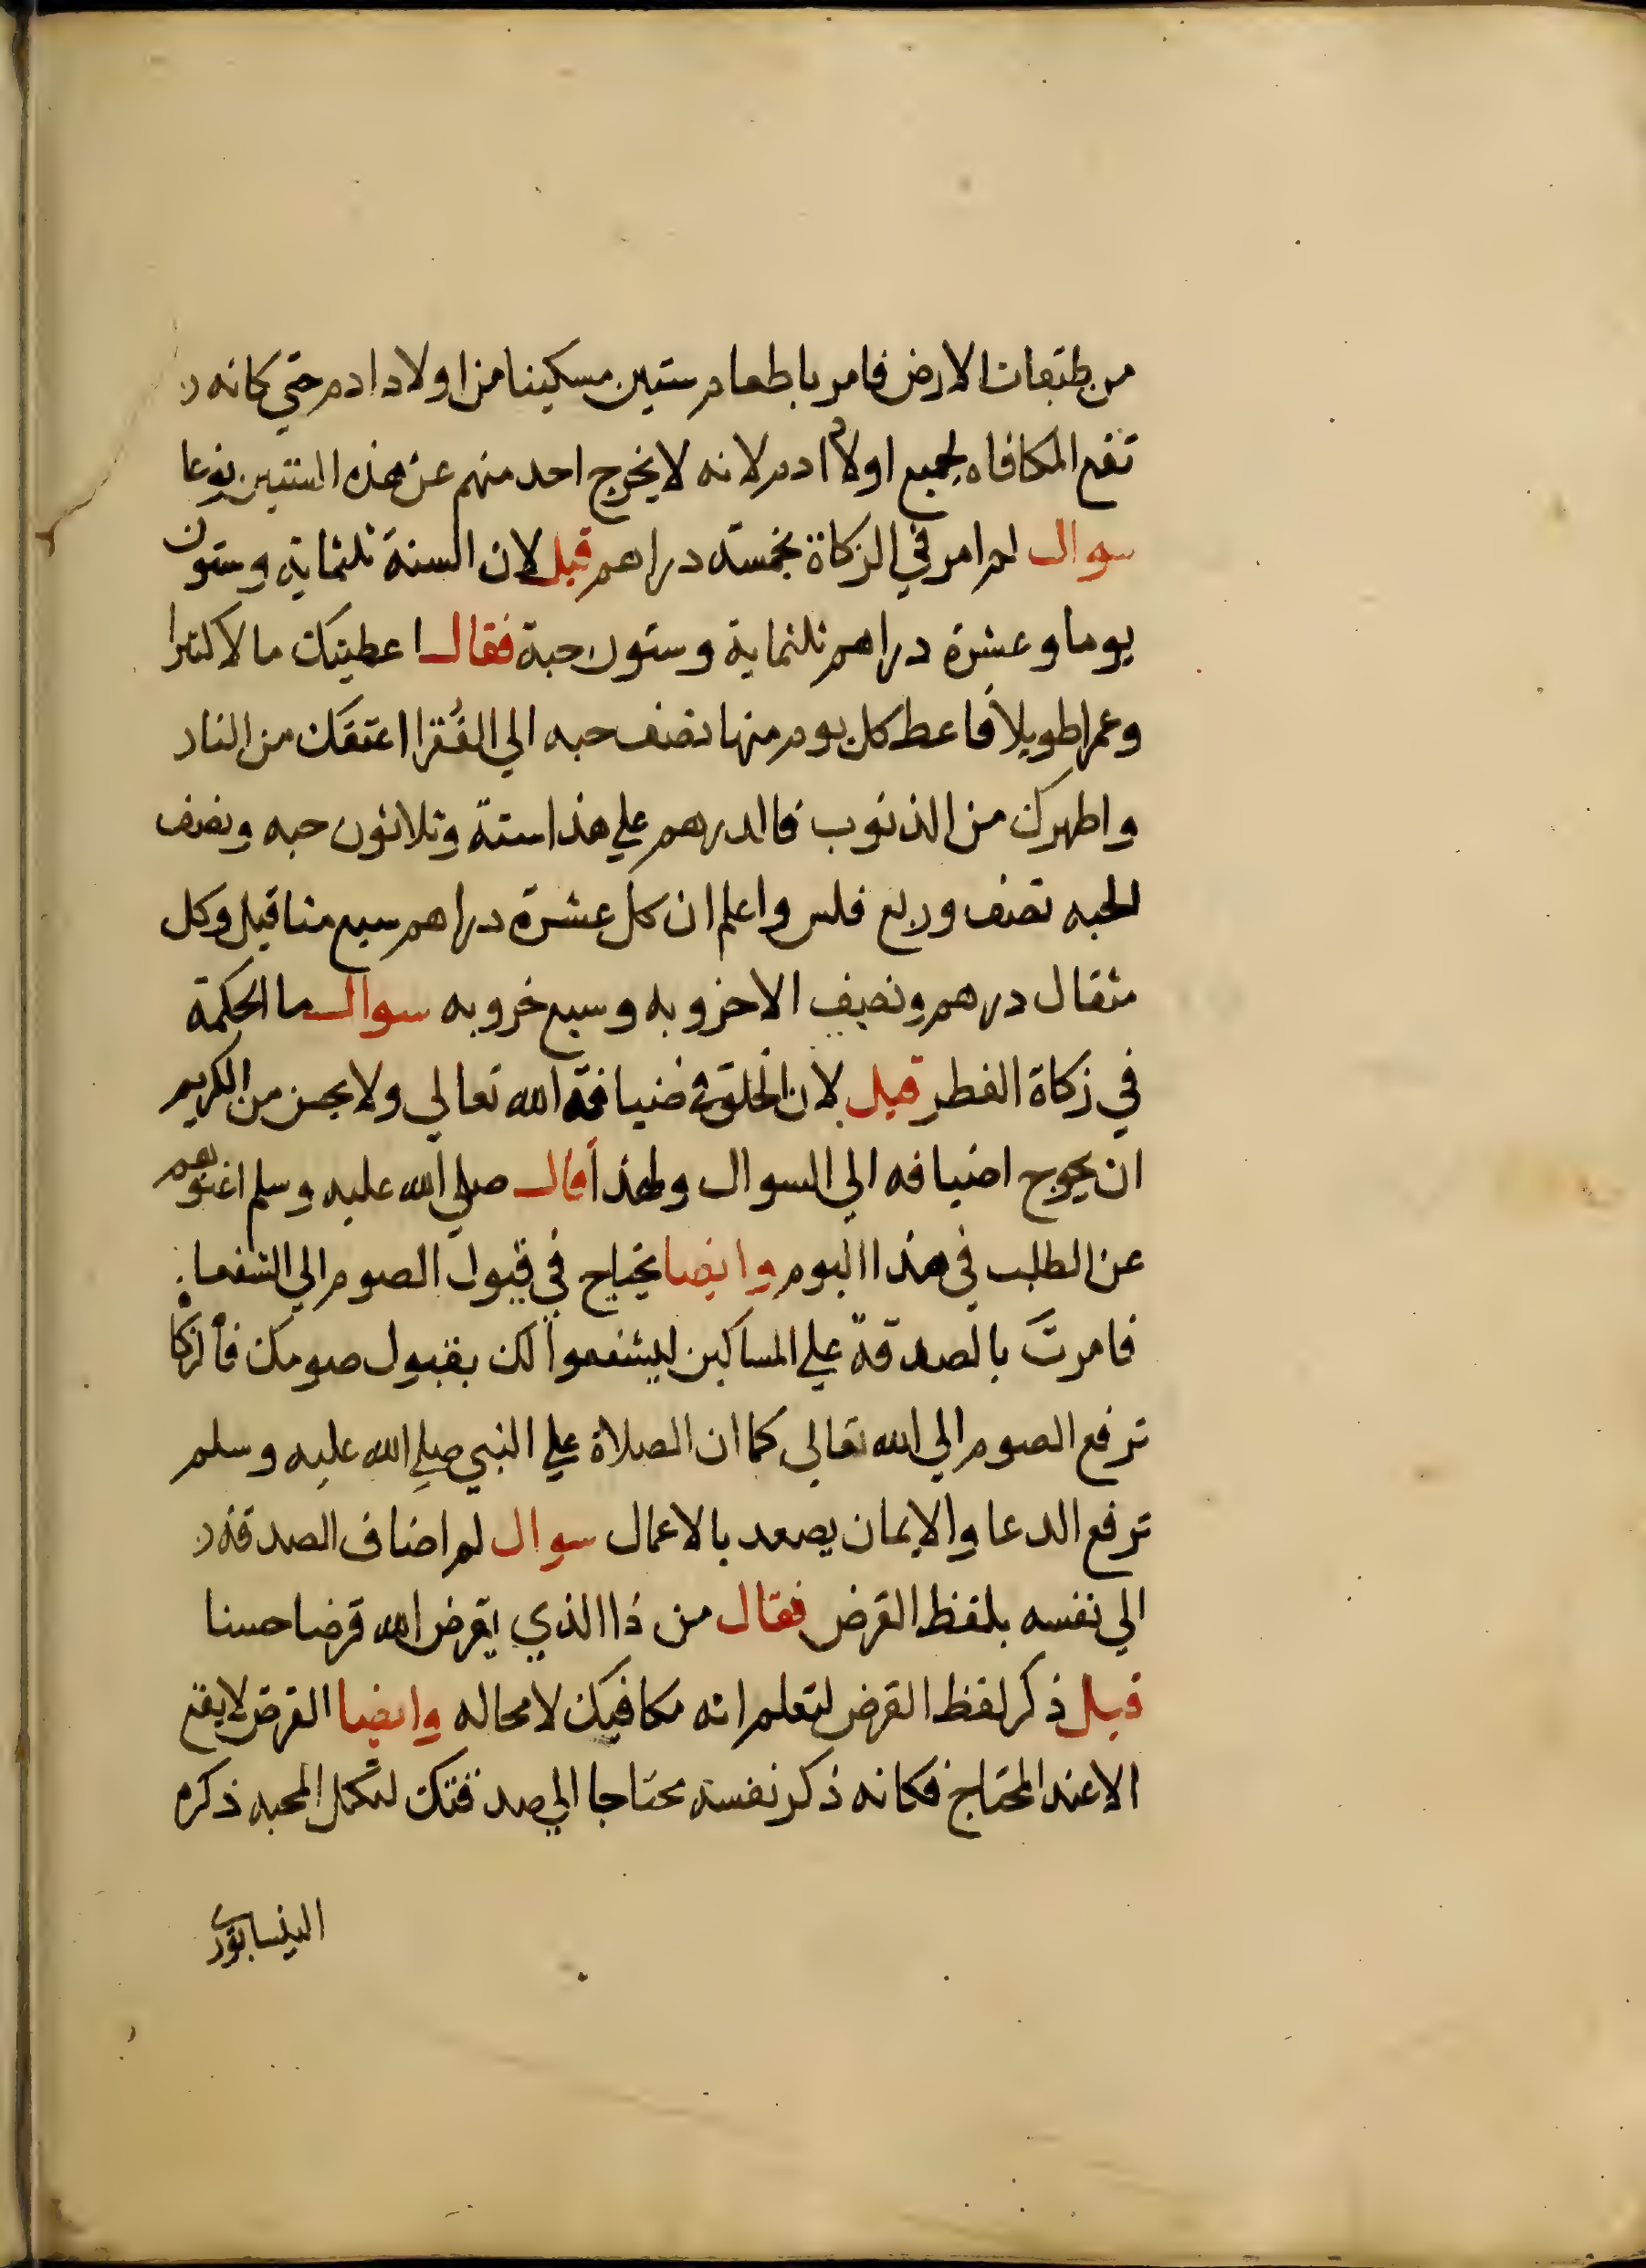 من طبقات الارض فامر باطعام ستين مسكينا من اولاد ادم حتي كانه
تقع المكافاه لجميع اولاد ادم لانه لا يخرج احد منهم عن هذه الستين نوعا
سوال لم امر في الزكاة بخمسة دراهم قيل لان السنة ثلثماية وستون
يوما وعشرة دراهم ثلثماية وستون حبة فقال اعطيتك مالا كثيرا
وعمرا طويلا فاعط كل يوم منها نصف حبه الي الفقرا اعتقك من النار
واطهرك من الذنوب فالدرهم علي هذا ستة وثلاثون حبه ونصف
الحبه نصف وربع فلس واعلم ان كل عشرة دراهم سبع مثاقيل وكل
مثقال درهم ونصف الاخروبه وسبع خروبه سوال ما الحكمة
في زكاة الفطر قيل لان الخلق في ضيافة الله تعالي ولا يحسن من الكريم
ان يحوج اضيافه الي السوال ولهذا قال صلي الله عليه وسلم اغنوهم
عن الطلب في هذا اليوم وايضا يحتاج في قبول الصوم الي الشفعا
فامرت بالصدقة علي المساكين ليشفعوا لك بقبول صومك فالزكاة
ترفع الصوم الي الله تعالي كما ان الصلاة علي النبي صلي الله عليه وسلم
ترفع الدعا والايمان يصعد بالاعمال سوال لم اضاف الصدقة
الي نفسه بلفظ القرض فقال من ذا الذي يقرض الله قرضا حسنا
قيل ذكر لفظ القرض لتعلم انه مكافيك لا محاله وايضا القرض لا يقع
الا عند المحتاج فكانه ذكر نفسه محتاجا الي صدقتك لتكمل المحبه ذكره
النيسابوري